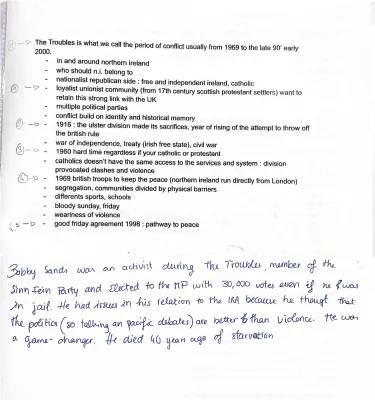 The Troubles is what we call the period of conflict usually from 1969 to the late 90' early
2000.
- in and around northern ireland
- who should n.i. belong to
- nationalist republican side : free and independent ireland, catholic
- loyalist unionist community (from 17th century scottish protestant settlers) want to
retain this strong link with the UK
- multiple political parties
- conflict build on identity and historical memory
- 1916 : the ulster division made its sacrifices, year of rising of the attempt to throw off
the british rule
- war of independence, treaty (irish free state), civil war
- 1960 hard time regardless if your catholic or protestant
- catholics doesn't have the same access to the services and system : division
provocated clashes and violence
- 1969 british troops to keep the peace (northern ireland run directly from London)
- segregation, communities divided by physical barriers
- differents sports, schools
- bloody sunday, friday
- weariness of violence
- good friday agreement 1998 : pathway to peace
Bobby Sands was an activist during the Troubles, member of the
Sinn Fein Party and elected to the MP with 30,000 votes even if he was
in jail. He had issues in his relation to the IRA because he thougt that
the politics (so talking an pacific debates) are better than violence. He was
a game-changer. He died 40 years ago of starvation